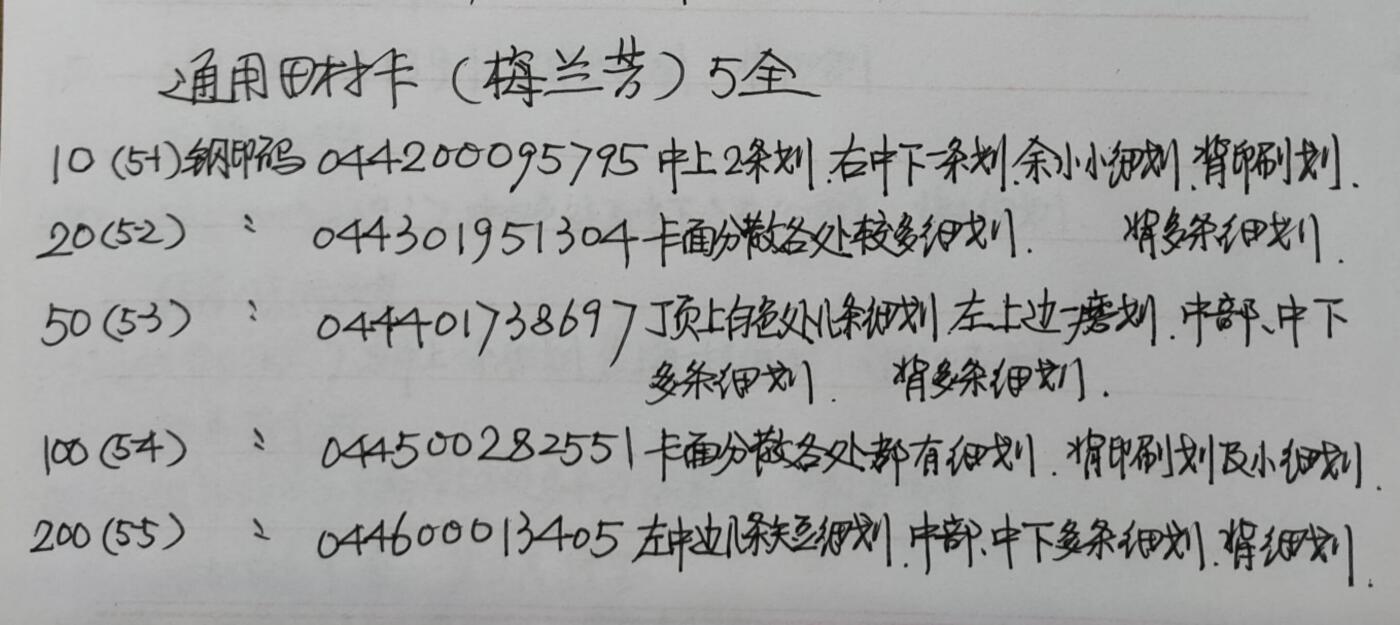 通用田村卡（梅兰芳）5全
10(5-1)钢印码 044200095795 中上2条划.右中下一条划.余小小细划.背印刷划.
20(5-2) 〃 044301951304 卡面分散各处较多细划. 背多条细划.
50(5-3) 〃 044401738697 顶上白色处几条细划 左上边一磨划.中部、中下
多条细划. 背多条细划.
100(5-4) 〃 044500282551 卡面分散各处都有细划.背印刷划及小细划.
200(5-5) 〃 044600013405 左中边几条短细划.中部、中下多条细划.背细划.